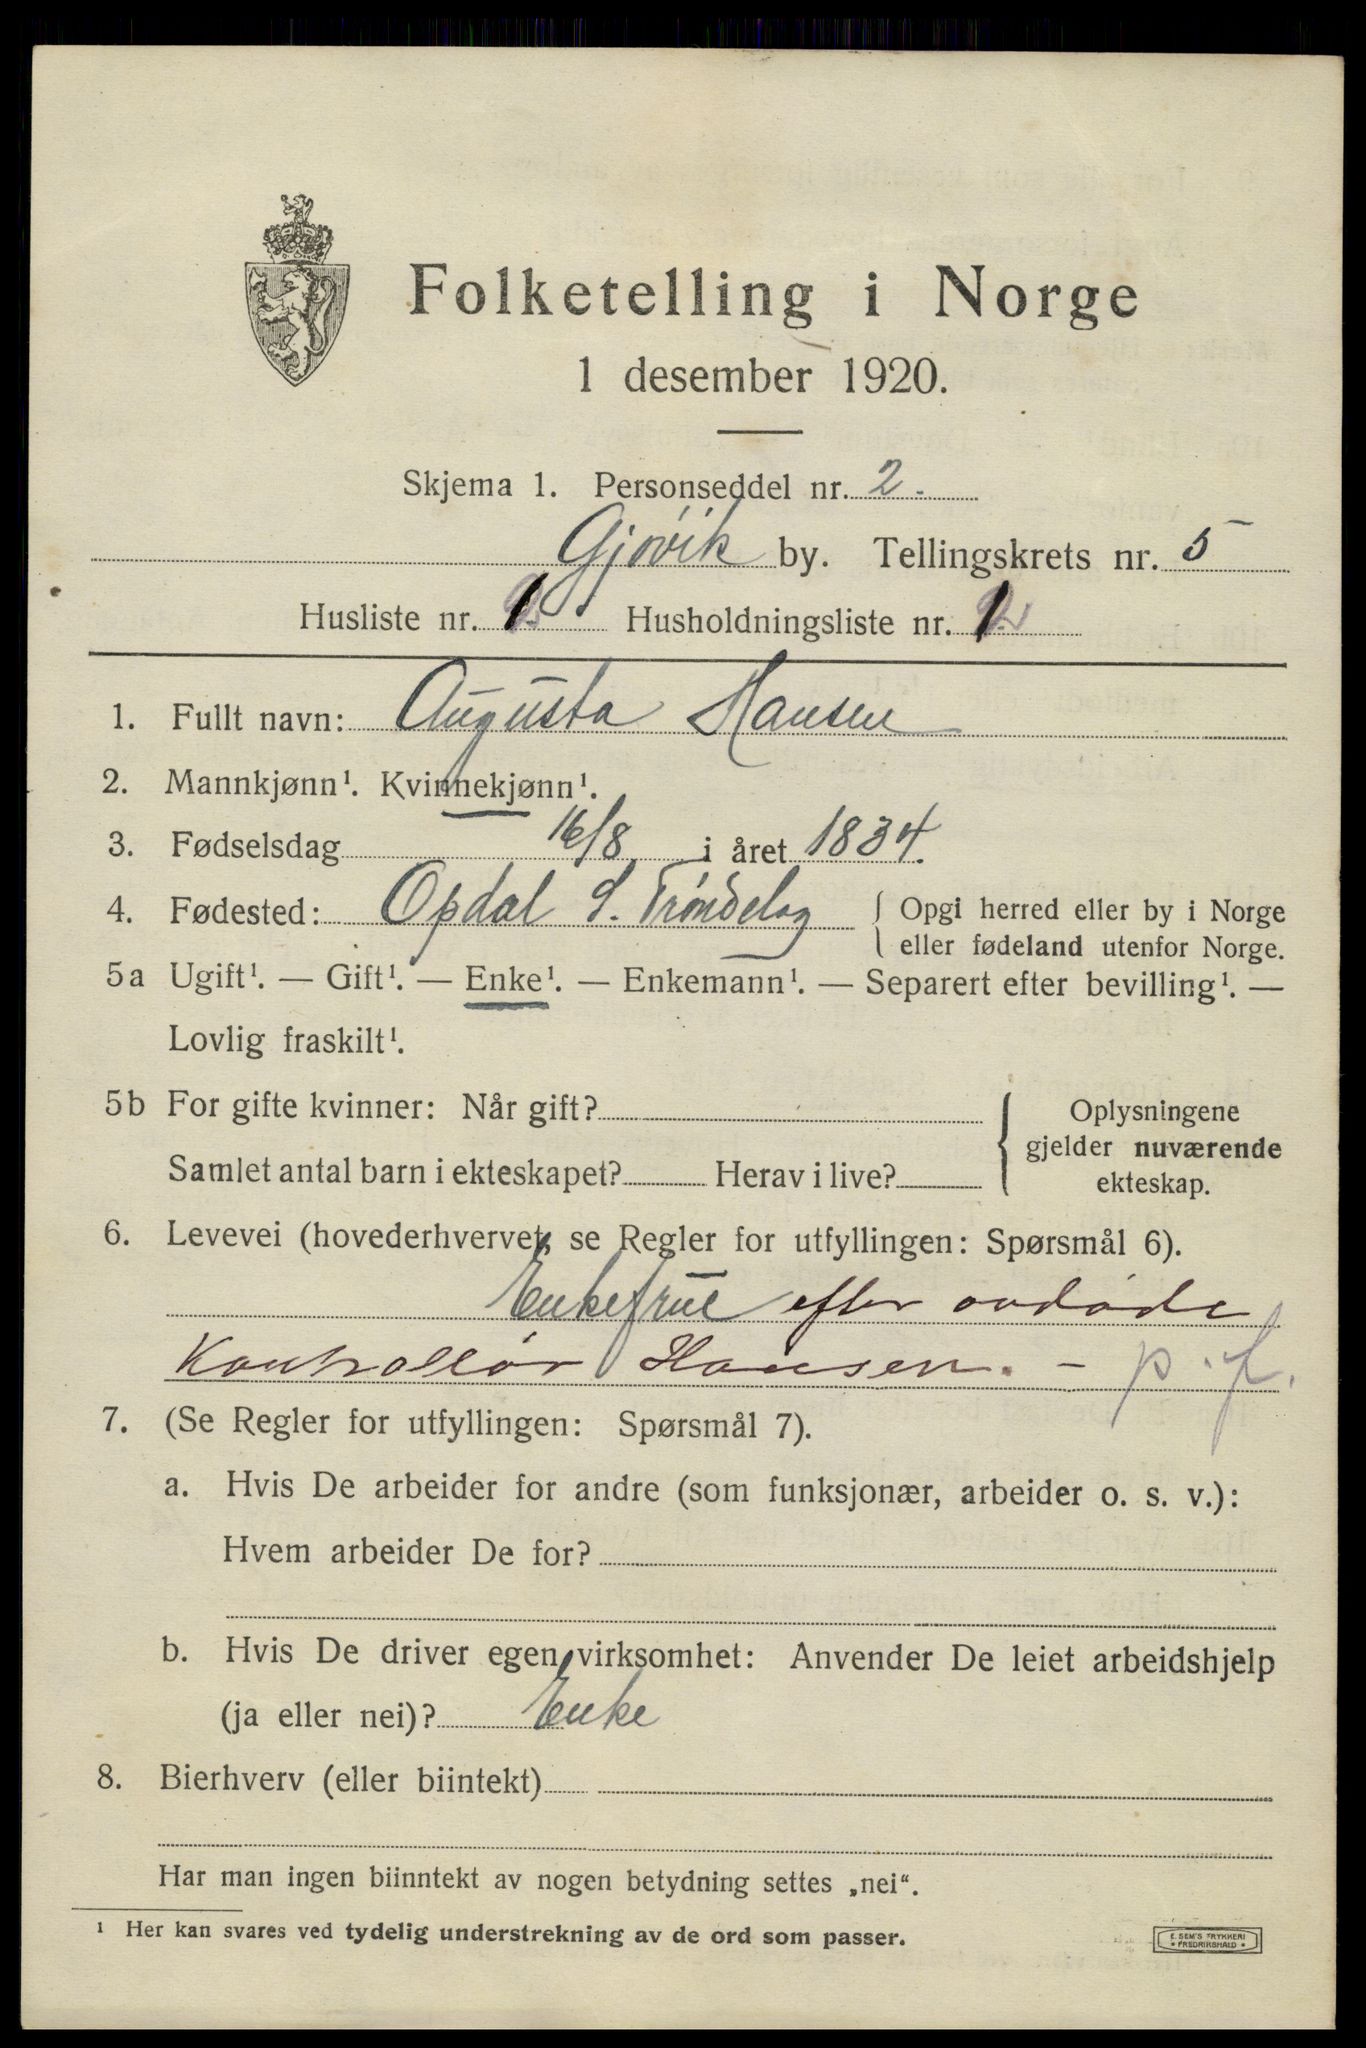 Folketelling i Norge
1 desember 1920.
Skjema 1. Personseddel nr. 2.
Gjøvik by. Tellingskrets nr. 5
Husliste nr. 1 Husholdningsliste nr. 1
1. Fullt navn: Augusta Hansen
2. Mannkjønn¹. Kvinnekjønn¹.
3. Fødselsdag 16/8 i året 1834.
4. Fødested: Opdal S. Trøndelag { Opgi herred eller by i Norge
eller fødeland utenfor Norge.
5a Ugift¹. — Gift¹. — Enke¹. — Enkemann¹. — Separert efter bevilling¹. —
Lovlig fraskilt¹.
5b For gifte kvinner: Når gift? Oplysningene
gjelder nuværende
Samlet antal barn i ekteskapet? Herav i live? ekteskap.
6. Levevei (hovederhvervet, se Regler for utfyllingen: Spørsmål 6).
Enkefrue efter avdøde
Kontrollør Hansen. – p.f.
7. (Se Regler for utfyllingen: Spørsmål 7).
a. Hvis De arbeider for andre (som funksjonær, arbeider o. s. v.):
Hvem arbeider De for?
b. Hvis De driver egen virksomhet: Anvender De leiet arbeidshjelp
(ja eller nei)? Enke
8. Bierhverv (eller biintekt)
Har man ingen biinntekt av nogen betydning settes „nei“.
¹ Her kan svares ved tydelig understrekning av de ord som passer.
E. SEM'S TRYKKERI
FREDRIKSHALD